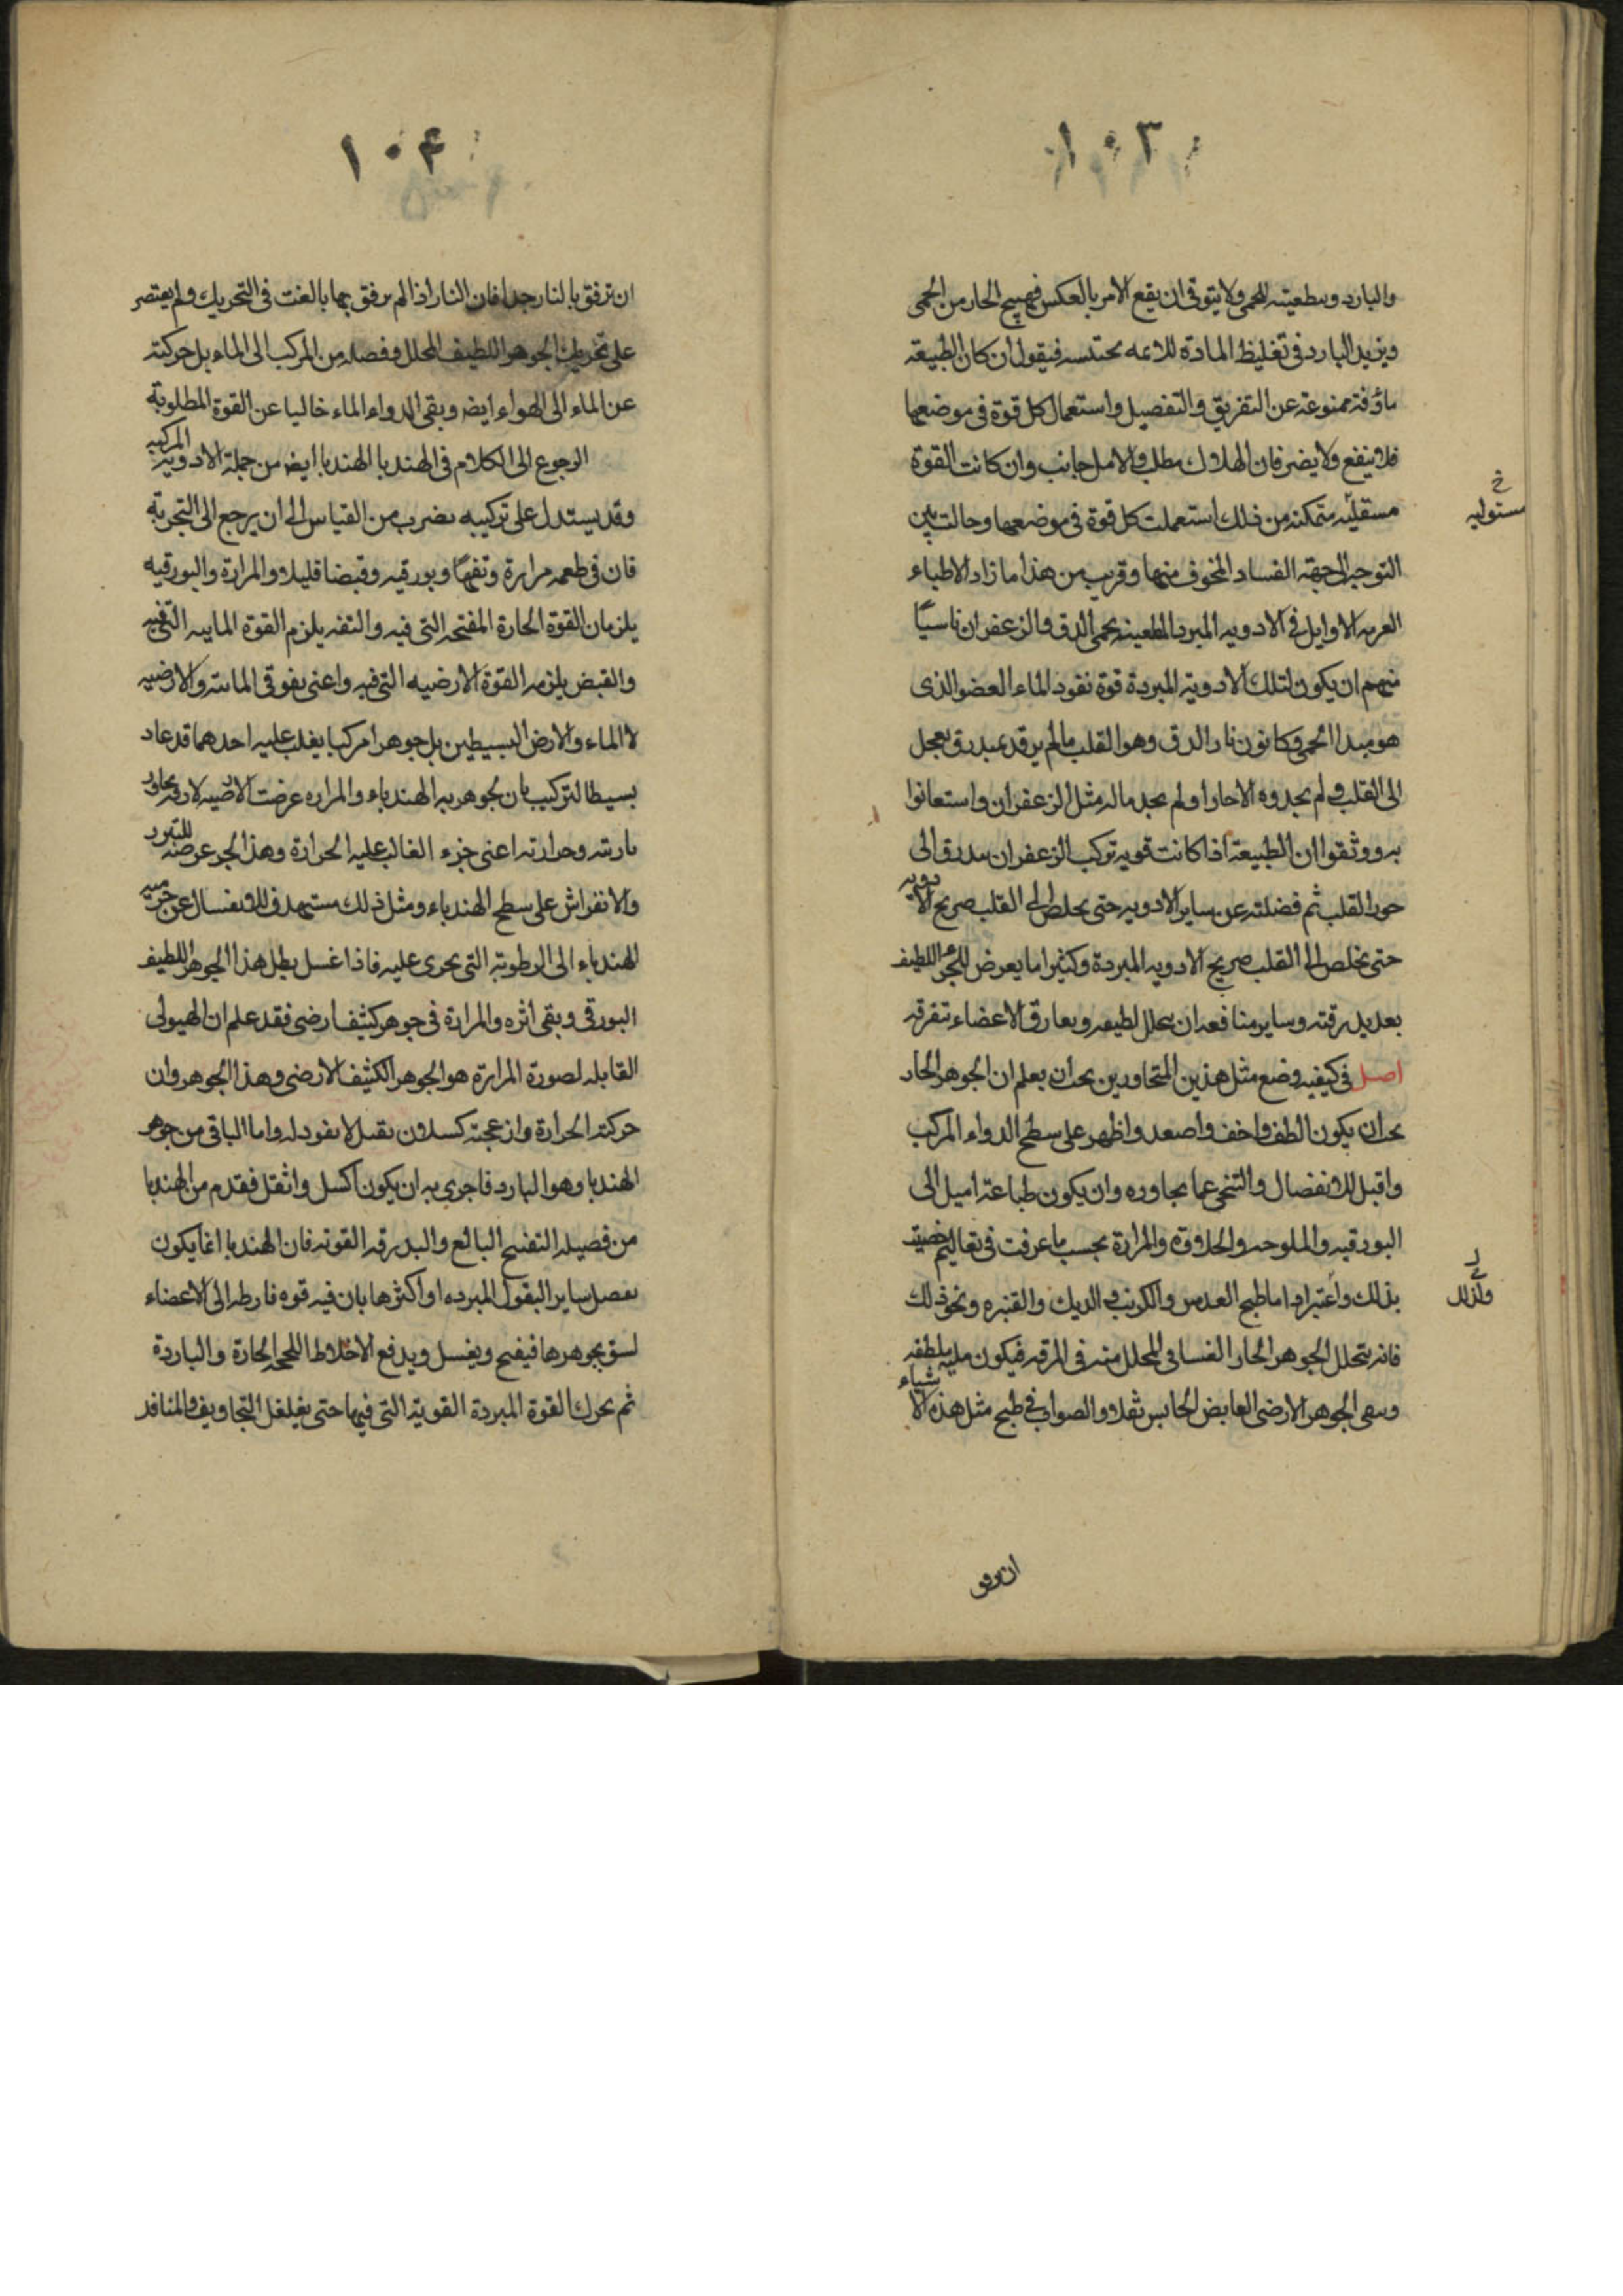 ١٠٣
والبارد وسطعيته للحمى ولا يتوقى ان يقع الامر بالعكس فيهيج الحار من الحمى
ويزيد البارد فى تغليظ المادة محتبسه فيقول ان كان الطبيعة
ماؤفة ممنوعة عن التفريق والتفصيل واستعمال كل قوة فى موضعها
فلا ينفع ولا يضر فان الهلاك مطل والامل جانب وان كانت القوة
مستقله متمكنه من ذلك استعملت كل قوة فى موضعها وحالت بين
مستوليه
التوجه الى جهة الفساد المخوف منها وقريب من هذا ما زاد الاطباء
الاوايل فى الادويه المبرد المطعينه بحمى الدق والزعفران ناسيا
منهم ان يكون لتلك الادوية المبردة قوة نفود الماء العضو الذى
هو مبدا الحمى وكانون نار الدق وهو القلب مالم يبدرق بعجل
الى القلب ولم يجدوه الا حارا ولم يجد ماله مثل الزعفران واستعانوا
به ووثقوا ان الطبيعة اذا كانت قويه تركب الزعفران مدرق الى
حور القلب ثم فضلته عن ساير الادويه حتى يخلص الى القلب صريح الادويه
حتى يخلص الى القلب صريح الادويه المبردة وكثيرا ما يعرض للجوهر اللطيف
بعد بدرقته وساير منافعه ان يتحلل لطيفه ويعارق الاعضاء تنفرقه
اصل فى كيفيه وضع مثل هذين المتجاورين يجب ان يعلم ان الجوهر الحار
يجب ان يكون الطف واخف واصعد واظهر على سطح الدواء المركب
واقبل للانفصال والتنحى عما يجاوره وان يكون طباعته اميل الى
البورقيه والملوحه والحلاوة والمرارة بحسب ما عرفت فى تعاليم
بذلك واعتبر اما طبخ العدس والكرنب والديك والقنبره ونحو ذلك
فانه يتحلل الجوهر الحار الغسانى المحلل منه فى المرقه فيكون ملطفه
وسقى الجوهر الارضى القابض الحابس ثفلا والصواب فى طبخ مثل هذه الاشياء
ان ترفق
١٠۴
ان ترفق بالنار جدا فان النار اذا لم يرفق بها بالغت فى التحريك ولم يقتصر
على تحريك الجوهر اللطيف المحلل وفصله من المركب الى الماء بل حركته
عن الماء الى الهواء ايضه وبقى الدواء الماء خاليا عن القوة المطلوبة
الرجوع الى الكلام فى الهندبا الهندبا ايضه من جملة الادويه المركبه
وقد يستدل على تركيبه بضرب من القياس الى ان يرجع الى التجربة
فان فى طعمه مرارة وتفها وبورقيه وقبضا قليلا والمرارة والبورقيه
يلزمان القوة الحارة المفتحه التى فيه والتفه يلزم القوة المايه التى فيه
والقبض يلزمه القوة الارضيه التى فيه واعنى بفوقى المائيه والارضيه
لا الماء والارض البسيطين بل جوهرا مركبا يغلب عليه احدهما قد عاد
بسيط التركيب بان بجوهريه الهندباء والمراره عرضت الارضيه
وحرارته اعنى جزء الغالب عليه الحرارة وهذا الجو عرضه للتبرد
والانفراش على سطح الهندباء ومثل ذلك مستهدف للانفسال عن
الهندباء الى الرطوبة التى يجرى عليه فاذا غسل بطل هذا الجوهر اللطيف
البورقى وبقى اثره والمرارة فى جوهر كثيف ارضى فقد علم ان الهيولى
القابله لصورة المرارة هو الجوهر الكثيف الارضى وهذا الجوهر وان
حركته الحرارة وازعجته كسلان ثقيل لا نفود له واما الباقى من جوهر
الهندبا وهو البارد فاجرى به ان يكون اكسل واثقل فقدم من الهندبا
من فصيله التفتيح البالغ والبدرقه القويه فان الهندبا انما يكون
تفصل ساير البقول المبرده او اكثرها بان فيه قوه الى الاعضاء
بجوهرها فيفتح ويغسل ويدفع الاخلاط اللحجه الحارة والباردة
ثم يحرك القوة المبردة القوية التى فيها حتى يغلغل التجاويف والمنافذ
وانزلك